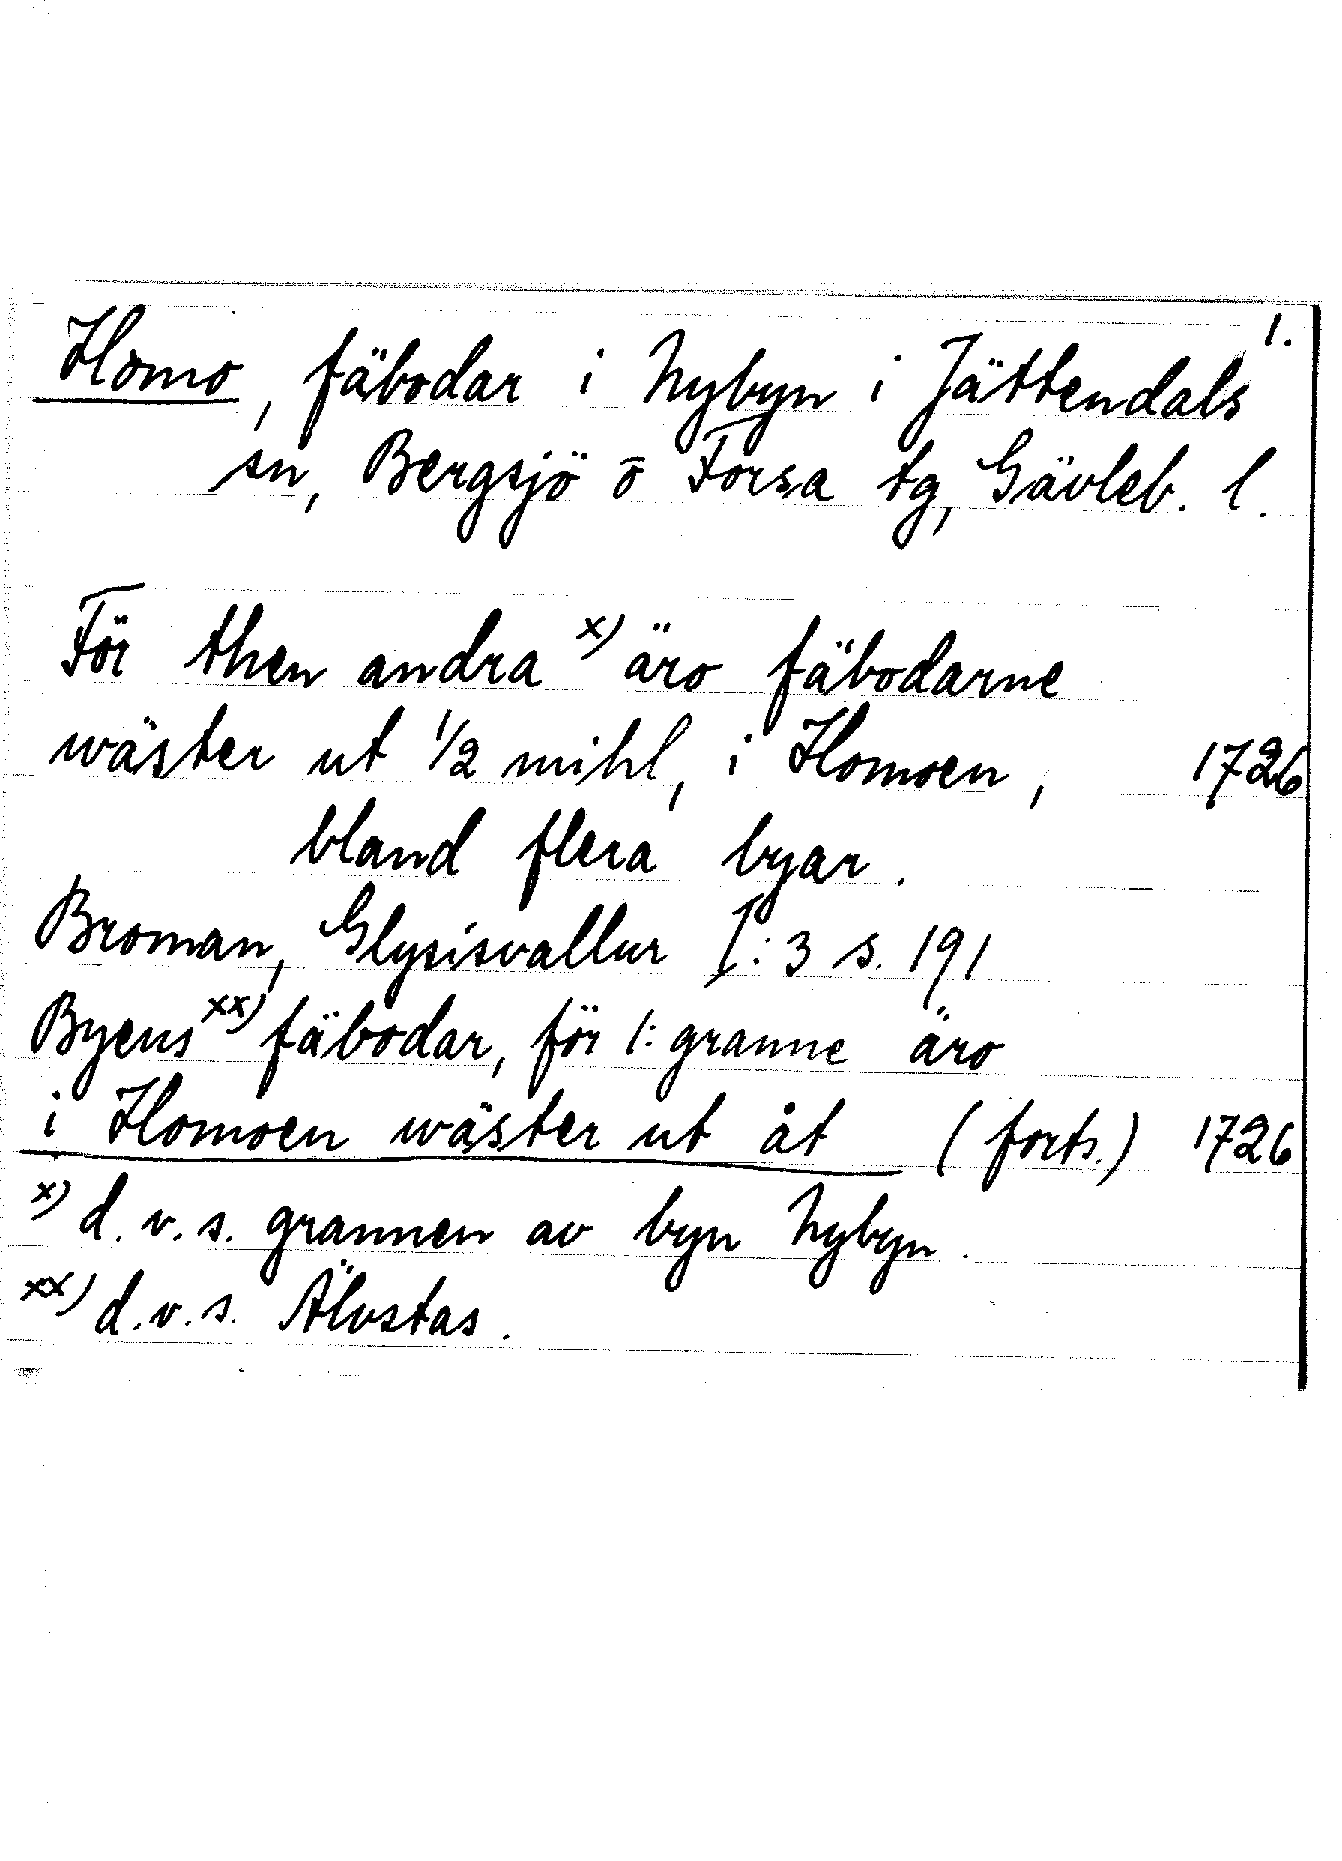 1.
Homo, fäbodar i Nybyn i Jättendals
sn, Bergsjö o Forsa tg, Gävleb. l.
För then andra x) äro fäbodarne
wäster ut 1/2 mihl, i Homoen, 1726
bland flera byar.
Broman, Glysisvallur I:3 s. 191
Byens xx) fäbodar, för 1: granne äro
i Homoen wäster ut åt (forts.) 1726
x) d.v.s. grannen av byn Nybyn.
xx) d.v.s. Älvstas.